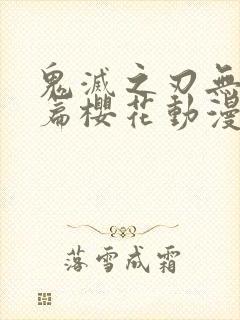 鬼滅之刃無
篇櫻花動漫
落雪成霜